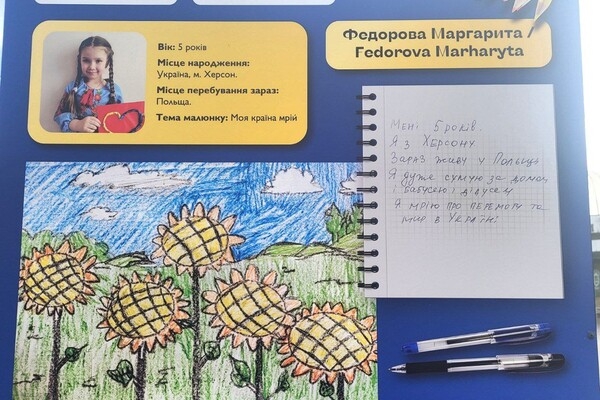 Вік: 5 років
Місце народження:
Україна, м. Херсон.
Місце перебування зараз:
Польща.
Тема малюнку: Моя країна мрій
Федорова Маргарита /
Fedorova Marharyta
Мені 5 років.
Я з Херсону
Зараз живу у Польщі
Я дуже сумую за домом
і бабусею і дідусем
Я мрію про перемогу та
мир в Україні